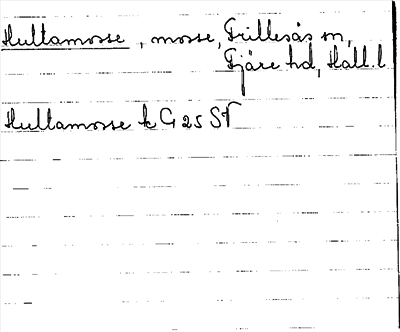 Hultamosse, mosse, Frillesås sn,
Fjäre hd, Hall. l
Hultamosse tc G 25 SV